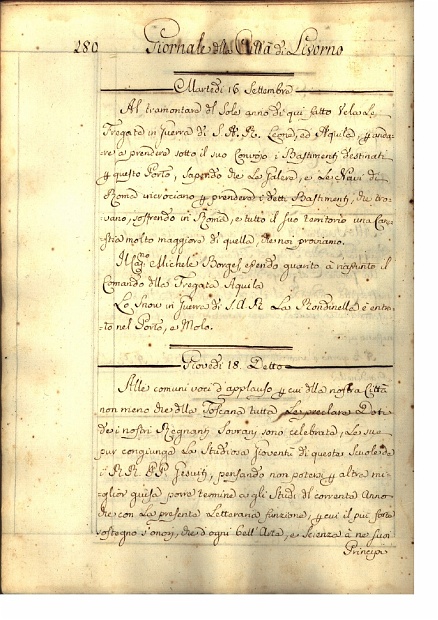 280 Giornale della Città di Livorno
Martedì 16. Settembre
Al tramontare del Sole anno di qui fatto Vela Le
Fregate in Guerra di S. A. R. Leone, ed Aquila, per anda=
re a prendere sotto il suo Convojo i Bastimenti destinati
per questo Porto, sapendo che Le Galere, e Le Navi di
Roma incrociano per prendere i detti Bastimenti, che tro=
vano, soffrendo in Roma, e tutto il suo territorio una Care=
stia molto maggiore di quella, che noi proviamo.
Il Michele Borges essendo guarito à riassunto il
Comando della Fregata Aquila
Lo Snow in Guerra di S. A. R. La Rondinella è entra=
to nel Porto, e Molo.
Giovedì 18. Detto
Alle comuni voci d'applauso per cui dalla nostra Città
non meno che dalla Toscana tutta Le preclare Doti
dei nostri Regnanti Sovrani sono celebrate, Le sue
pur congiunga La Studiosa Gioventù di queste Scuole de
i RR. PP. Gesuiti, pensando non potersi per altra mi=
=glior guisa porre termine a gli Studi del corrente Anno
che con La presente Letteraria funzione, per cui il più forte
sostegno s'onori, che d'ogni bell'Arte, e Scienza à ne suoi
Principi